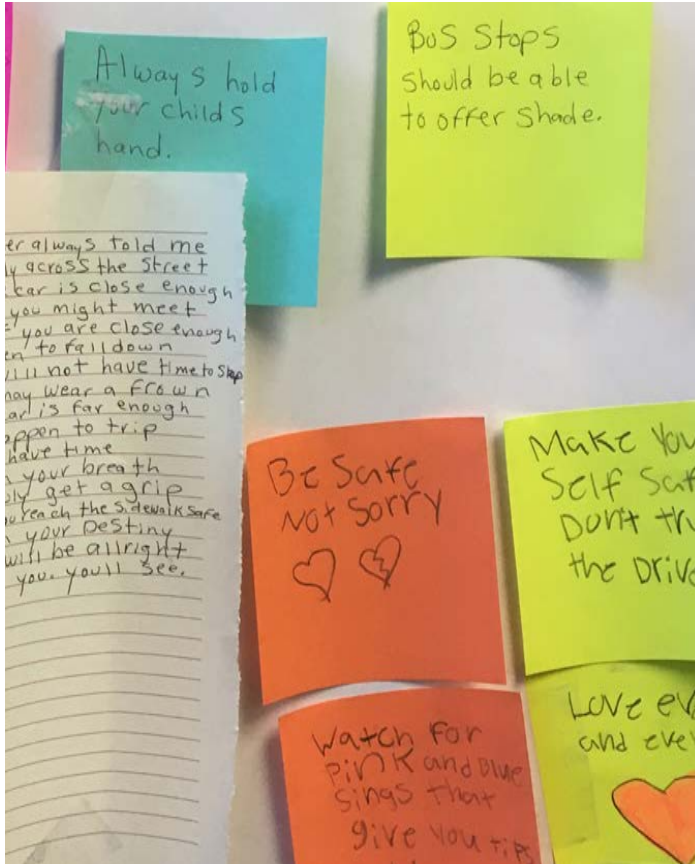 Always hold
your childs
hand.
Bus Stops
should be able
to offer shade.
always told me
across the Street
car is close enough
you might meet
you are close enough
to fall down
not have time to Stop
may wear a frown
is far enough
to trip
have time
your breath
get a grip
reach the Sidewalk Safe
your Destiny
will be allright
you. you'll see.
Be Safe
Not Sorry
Make
Self
Don't
the
Watch For
Pink and Blue
Sings that
give you tips
Love
and